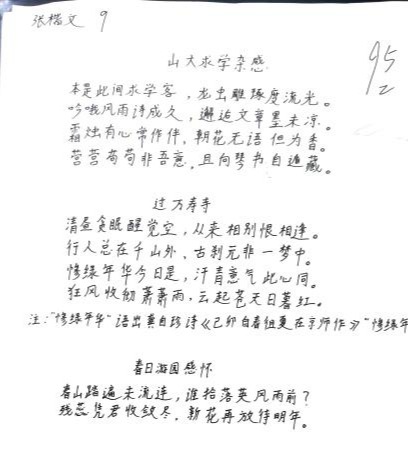 张楷文 9
95
2
山大求学杂感
本是此间求学客，龙虫雕琢度流光。
吟哦风雨诗成久，邂逅文章墨未凉。
霜烛有心常作伴，朝花无语但为香。
营营苟苟非吾意，且向琴书自遁藏。
过万寿寺
清昼贪眠醒觉空，从来相别恨相逢。
行人总在千山外，古刹元非一梦中。
惨绿年华今日是，汗青意气此心同。
狂风收彻萧萧雨，云起苍天日暮红。
注："惨绿年华"语出龚自珍诗《己卯自春徂夏在京师作》"惨绿年
春日游园感怀
春山踏遍未流连，谁拾落英风雨前？
残蕊凭君收敛尽，新花再放待明年。